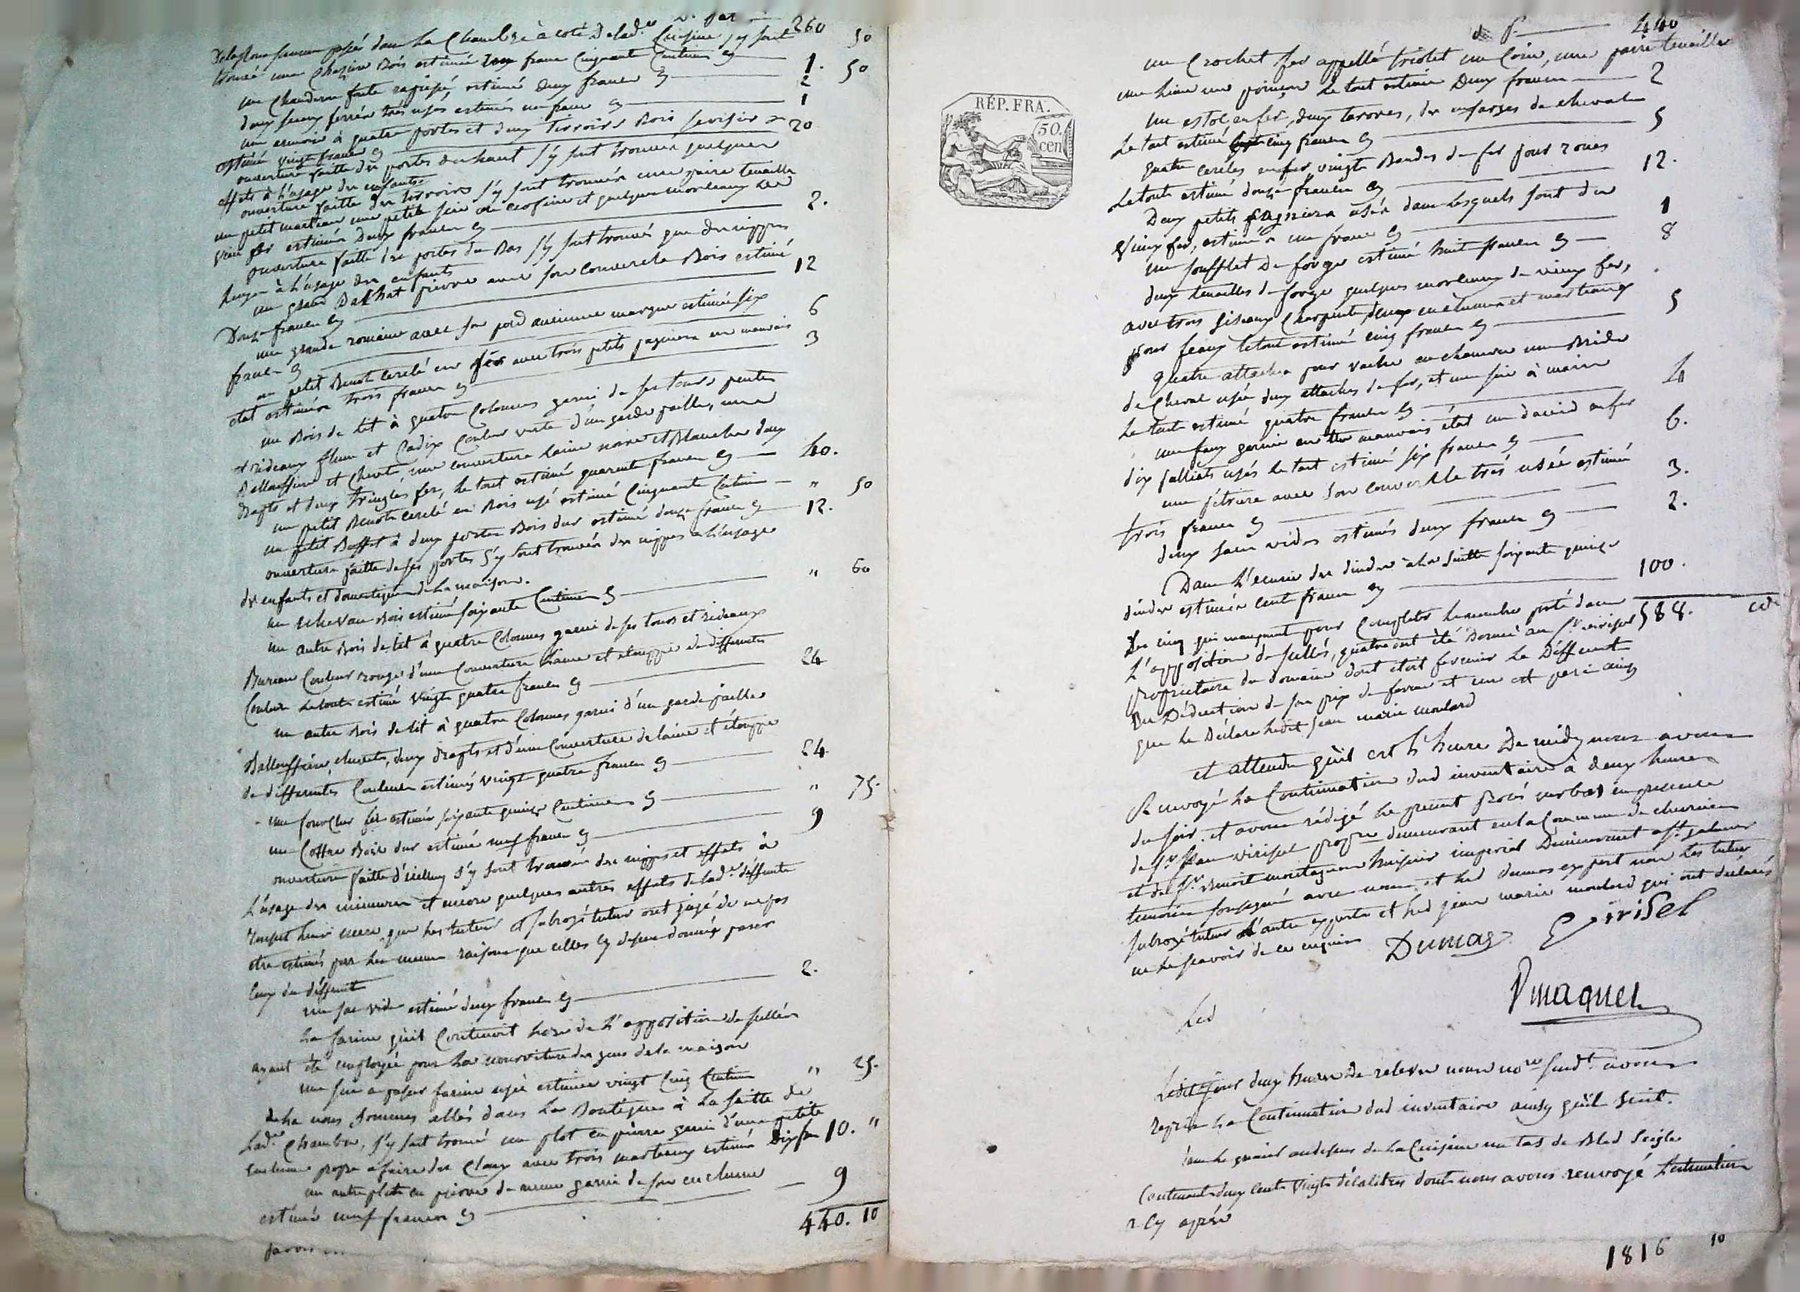 260 50
De la somme passés dans la Chambre à coté de lad.e Cuisine s'y sont
trouvé une Chaziere Bois estimée un franc Cinquante Centimes Cy 1. 50
une Chaudiere fonte rapiessé, estimée deux francs Cy 2
deux seaux ferrés très usés estimés un franc Cy 1
un armoir à quatre portes et deux tirroirs Bois serisier
estimé vingt francs Cy 20
ouverture faitte des portes du haut s'y sont trouvés quelques
effets à l'usage des enfants
ouverture faitte des tirroirs s'y sont trouvés une paire tenaille
un petit marteau une petite scie et quelques morceaux de
vieux fer estimés Deux francs Cy 2.
ouverture faitte des portes du Bas s'y sont trouvés que des nippes
linges à l'usage des enfants
un grand Bachat pierre avec son couvercle Bois estimé
Douze francs Cy 12
une grande romaine avec son poid ancienne marque estimée six
francs Cy 6
un petit Benot cerclé en fer avec trois petits paniers en mauvais
etat estimés trois francs Cy 3
un Bois de lit à quatre Colonnes garni de ses tours pentes
et rideaux fleuret et Cadix Couleur verte d'un garde paille, une
Ballouffiere et Chevet une couverture laine noire et Blanche deux
draps et deux tringles fer, le tout estimé quarente francs Cy 40.
un petit Benot cerclé en Bois usé estimé Cinquante Centimes " 50
un petit Buffet à deux portes Bois dur estimé douze francs Cy 12.
ouverture faitte de ses portes s'y sont trouvés des nippes à l'usage
des enfants et domestiques de la maison.
un Echevau Bois estimé soixante Centimes Cy " 60
un autre Bois de lit à quatre Colonnes garni de ses tours et rideaux
Bureau Couleur rouge d'une Couverture laine et etouppe de differentes
Couleurs le tout estimé vingt quatre francs Cy 24
un autre Bois de lit à quatre Colonnes garni d'un garde paille
Ballouffiere, chevets, deux draps et d'une Couverture de laine et étouppe
de differentes Couleurs estimés vingt quatre francs Cy 24
une Couvcler fer estimée soixante quinze Centimes Cy " 75.
un Coffre Bois dur estimé neuf francs Cy 9
ouverture faitte d'icelluy s'y sont trouvés des nippes et effets à
l'usage des mineures et encore quelques autres effets de lad.e deffunte
que les tuteur et subrogé tuteur ont jugé de ne pas
etre estimés par les memes raisons que celles cy dessus données pour
ceux du deffunt
un sac vide estimé deux francs Cy 2.
la farine qu'il Contenoit lors de l'apposition de scellés
ayant été employée pour la nourriture des gens de la maison
une scie a passer farine usée estimée vingt Cinq Centimes " 25.
de la nous sommes allés dans la Boutique à la suitte de
lad.e Chambre, s'y sont trouvé un plot en pierre garni d'une petite
enclume propre à faire des Cloux avec trois marteaux estimé Dix fr 10. "
un autre plot en pierre de meme garni de son enclume
estimés neuf francs Cy 9
440. 10
de P. 440
un Crochet fer appellé triolet un Coin, une paire tenaille
une lime une poinçon le tout estimé Deux francs 2
un estoc en fer, deux tarores, des enfarges de cheval
le tout estimé cinq francs Cy 5
quatre cercles en fer vingt Bandes de fer pour roues
le tout estimé douze francs Cy 12.
Deux petits paniers usés dans lesquels sont du
vieux fer, estimés un franc Cy 1
un soufflet de forge estimé huit francs Cy 8
deux tenailles de forge quelques morceaux de vieux fer,
avec trois Ciseaux Charpente, deux enclumes et marteaux
pour faux le tout estimé cinq francs Cy 5
quatre attaches pour vache en chanvre une Bride
de Cheval usée deux attaches de fer, et une scie à mains
le tout estimé quatre francs Cy 4
une faux garnie en très mauvais état un daviid en fer
dix falliets usés le tout estimé six francs Cy 6.
une pétriere avec son couvercle très usée estimée
trois francs Cy 3.
deux sacs vides estimés deux francs Cy 2.
Dans l'écurie des dindes à la suitte soixante quinze
dindes estimées cent francs Cy 100.
588.
Les cinq qui manquent pour Completer le nombre porté dans
l'apposition de scellés, quatre ont été donnés au s.r virisel
propriétaire du domaine dont etoit fermier le Deffunt
en Déduction de son prix de ferme et une est perie ainsy
que le Déclare ledit Jean marie moulard
et attendu qu'il est l'heure de midy nous avons
Renvoyé la Continuation dud inventaire à deux heures
du soir, et avons rédigé le present procès verbal en presence
de s.r Jean virisel propre demeurant en la Commune de cheurieu
et de s.r Benoit montagnon huissier imperial Demeurant a St galmier
temoins soussignés avec nous, et led dumas expert non les tuteur
subrogé tuteur l'autre experte et led jean marie moulard qui ont déclarés
ne le sçavoir de ce enquis Dumas Girisel
Pmaguel
Led
Ledit jour deux heures de relevée nous no.re susd.t avons
repris la Continuation dud inventaire ainsy qu'il suit.
sur le grenier audessus de la Cuisine un tas de Bled Seigle
Contenant deux Cents Vingts décalitres dont nous avons renvoyé l'estimation
Cy après
1816 10
RÉP. FRA.
50.
cen